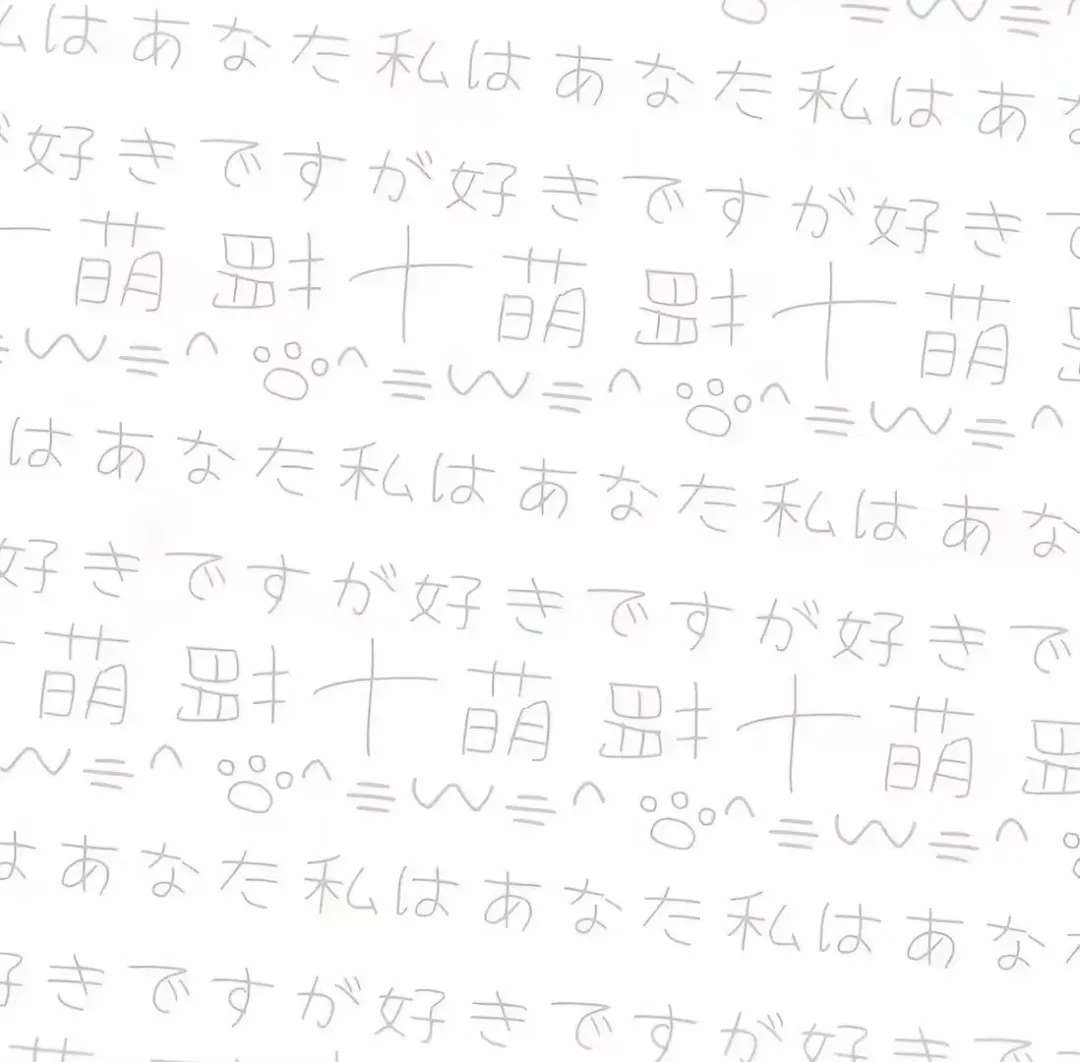 ≡w≡^
はあなた私はあなた私はあ
好きですが好きですが好き
萌 十萌 十萌
w≡^ ^≡w≡^ ^≡w≡^
はあなた私はあなた私はあな
好きですが好きですが好きで
萌 十萌 十萌
w≡^ ^≡w≡^ ^≡w≡^
はあなた私はあなた私はあな
好きですが好きですが好き